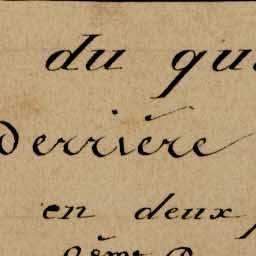 du qu
derrière
en deux
2ème